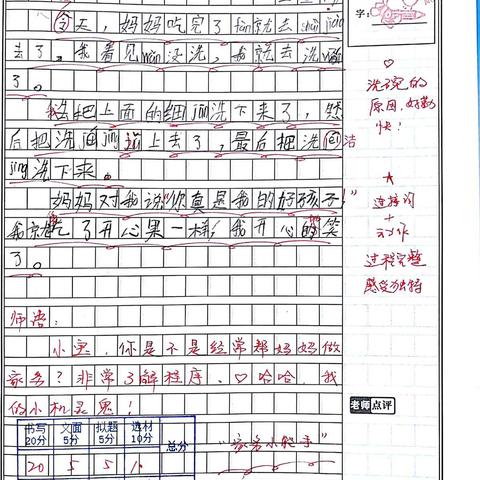 字:
今天,妈妈吃完了fàn就去shuì jiào
去了。我看见wǎn没洗,我就去洗wǎn
了。
我把上面的细jūn洗下来了,然
后把洗 jīng 上去了,最后把洗
jīng洗下来。
妈妈对我说"你真是我的好孩子!"
我 吃了开心果一样,我开心的笑
了。
洁
♡
洗碗的
原因,好勤
快!
★
连接词
+
动作
过程完整
感受独特
师语:
小宝,你是不是经常帮妈妈做
家务?非常了解程序。♡哈哈,我
的小机灵鬼!
老师点评
书写 20分 文面 5分 拟题 5分 选材 10分 总分
20 5 5 10
"家务小能手"